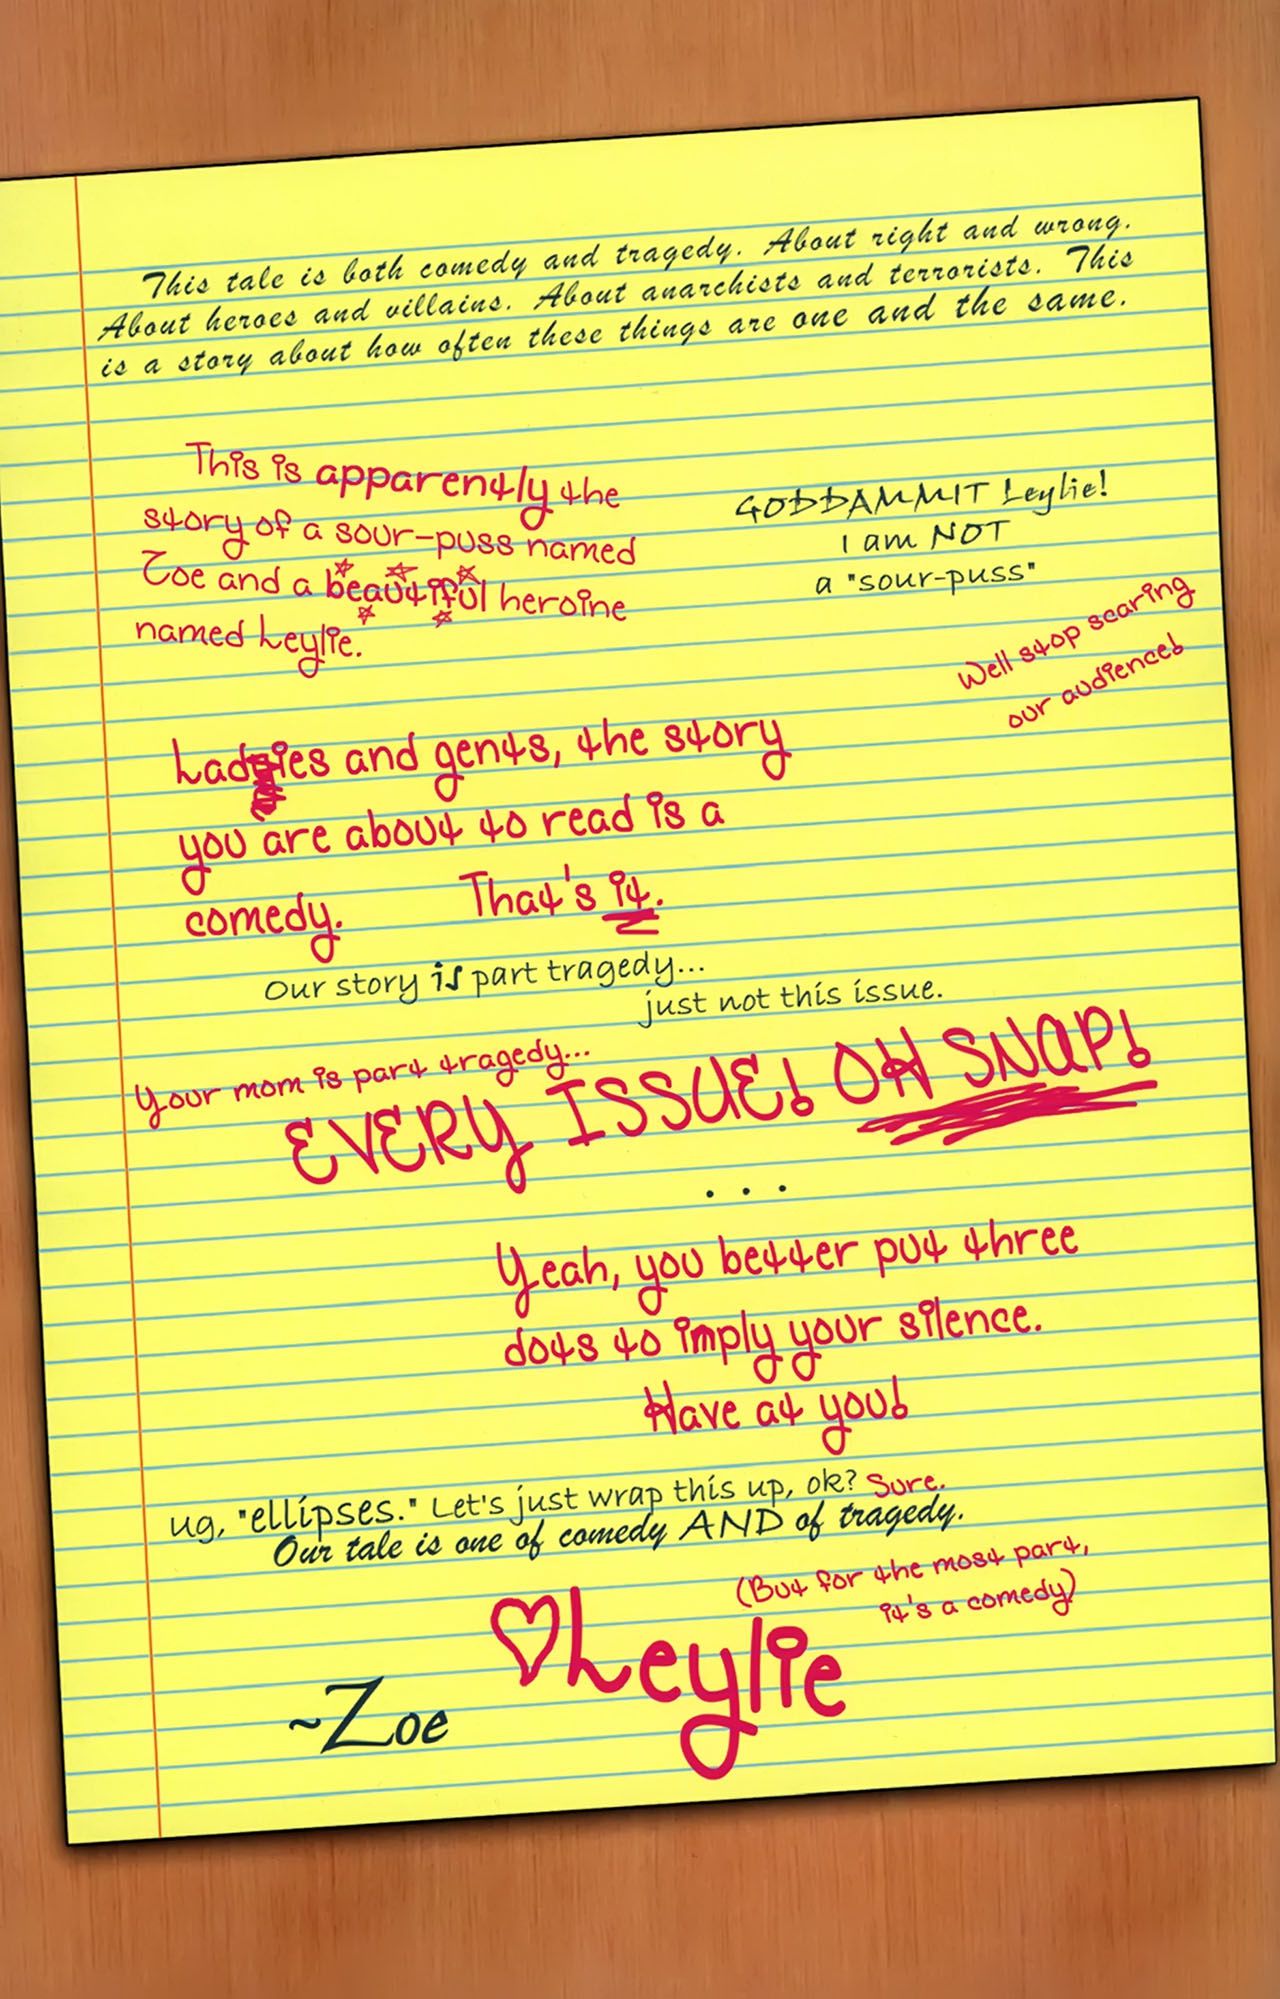 This tale is both comedy and tragedy. About right and wrong.
About heroes and villains. About anarchists and terrorists. This
is a story about how often these things are one and the same.
This is apparently the
story of a sour-puss named
Zoe and a beautiful heroine
named Leylie.
GODDAMMIT Leylie!
I am NOT
a "sour-puss"
Well stop scaring
our audience!
Ladies and gents, the story
you are about to read is a
comedy. That's it.
Our story is part tragedy...
just not this issue.
Your mom is part tragedy...
EVERY ISSUE! OH SNAP!
...
Yeah, you better put three
dots to imply your silence.
Have at you!
ug, "ellipses." Let's just wrap this up, ok? Sure.
Our tale is one of comedy AND of tragedy.
(But for the most part,
it's a comedy)
♡Leylie
~Zoe